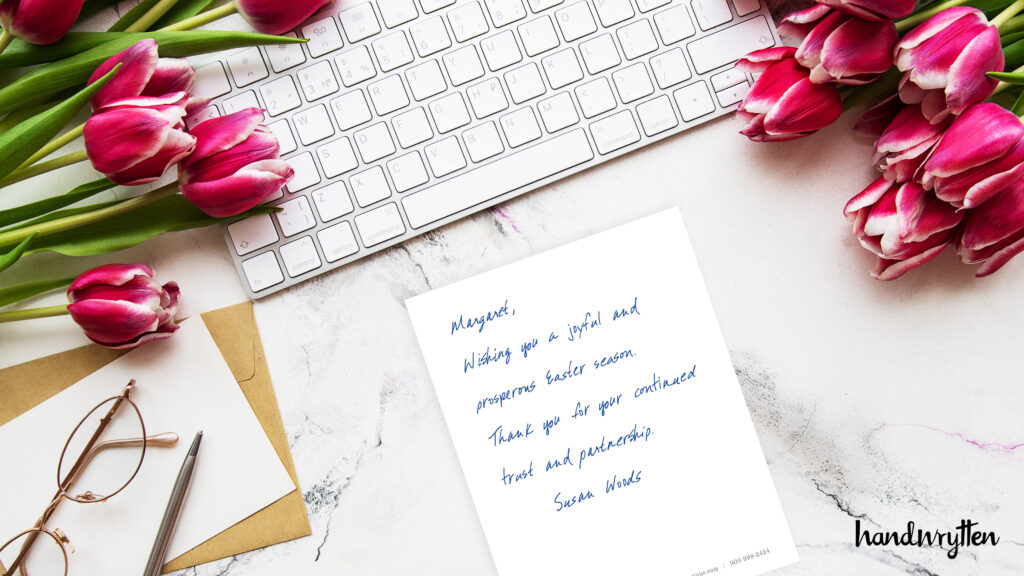 Margaret,
Wishing you a joyful and
prosperous Easter season.
Thank you for your continued
trust and partnership.
Susan Woods
909-999-2424
handwrytten
command
option
control
option
command